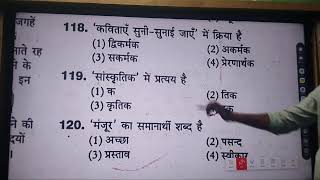 जगहें
118. ‘कविताएँ सुनी-सुनाई जाएँ’ में क्रिया है
(1) द्विकर्मक (2) अकर्मक
ाते रह
(3) सकर्मक (4) प्रेरणार्थक
ने के
119. ‘सांस्कृतिक’ में प्रत्यय है
इन
(1) क (2) तिक
(3) कृतिक
ने की
120. ‘मंजूर’ का समानार्थी शब्द है
(1) अच्छा (2) पसन्द
(3) प्रस्ताव (4) स्वीकार